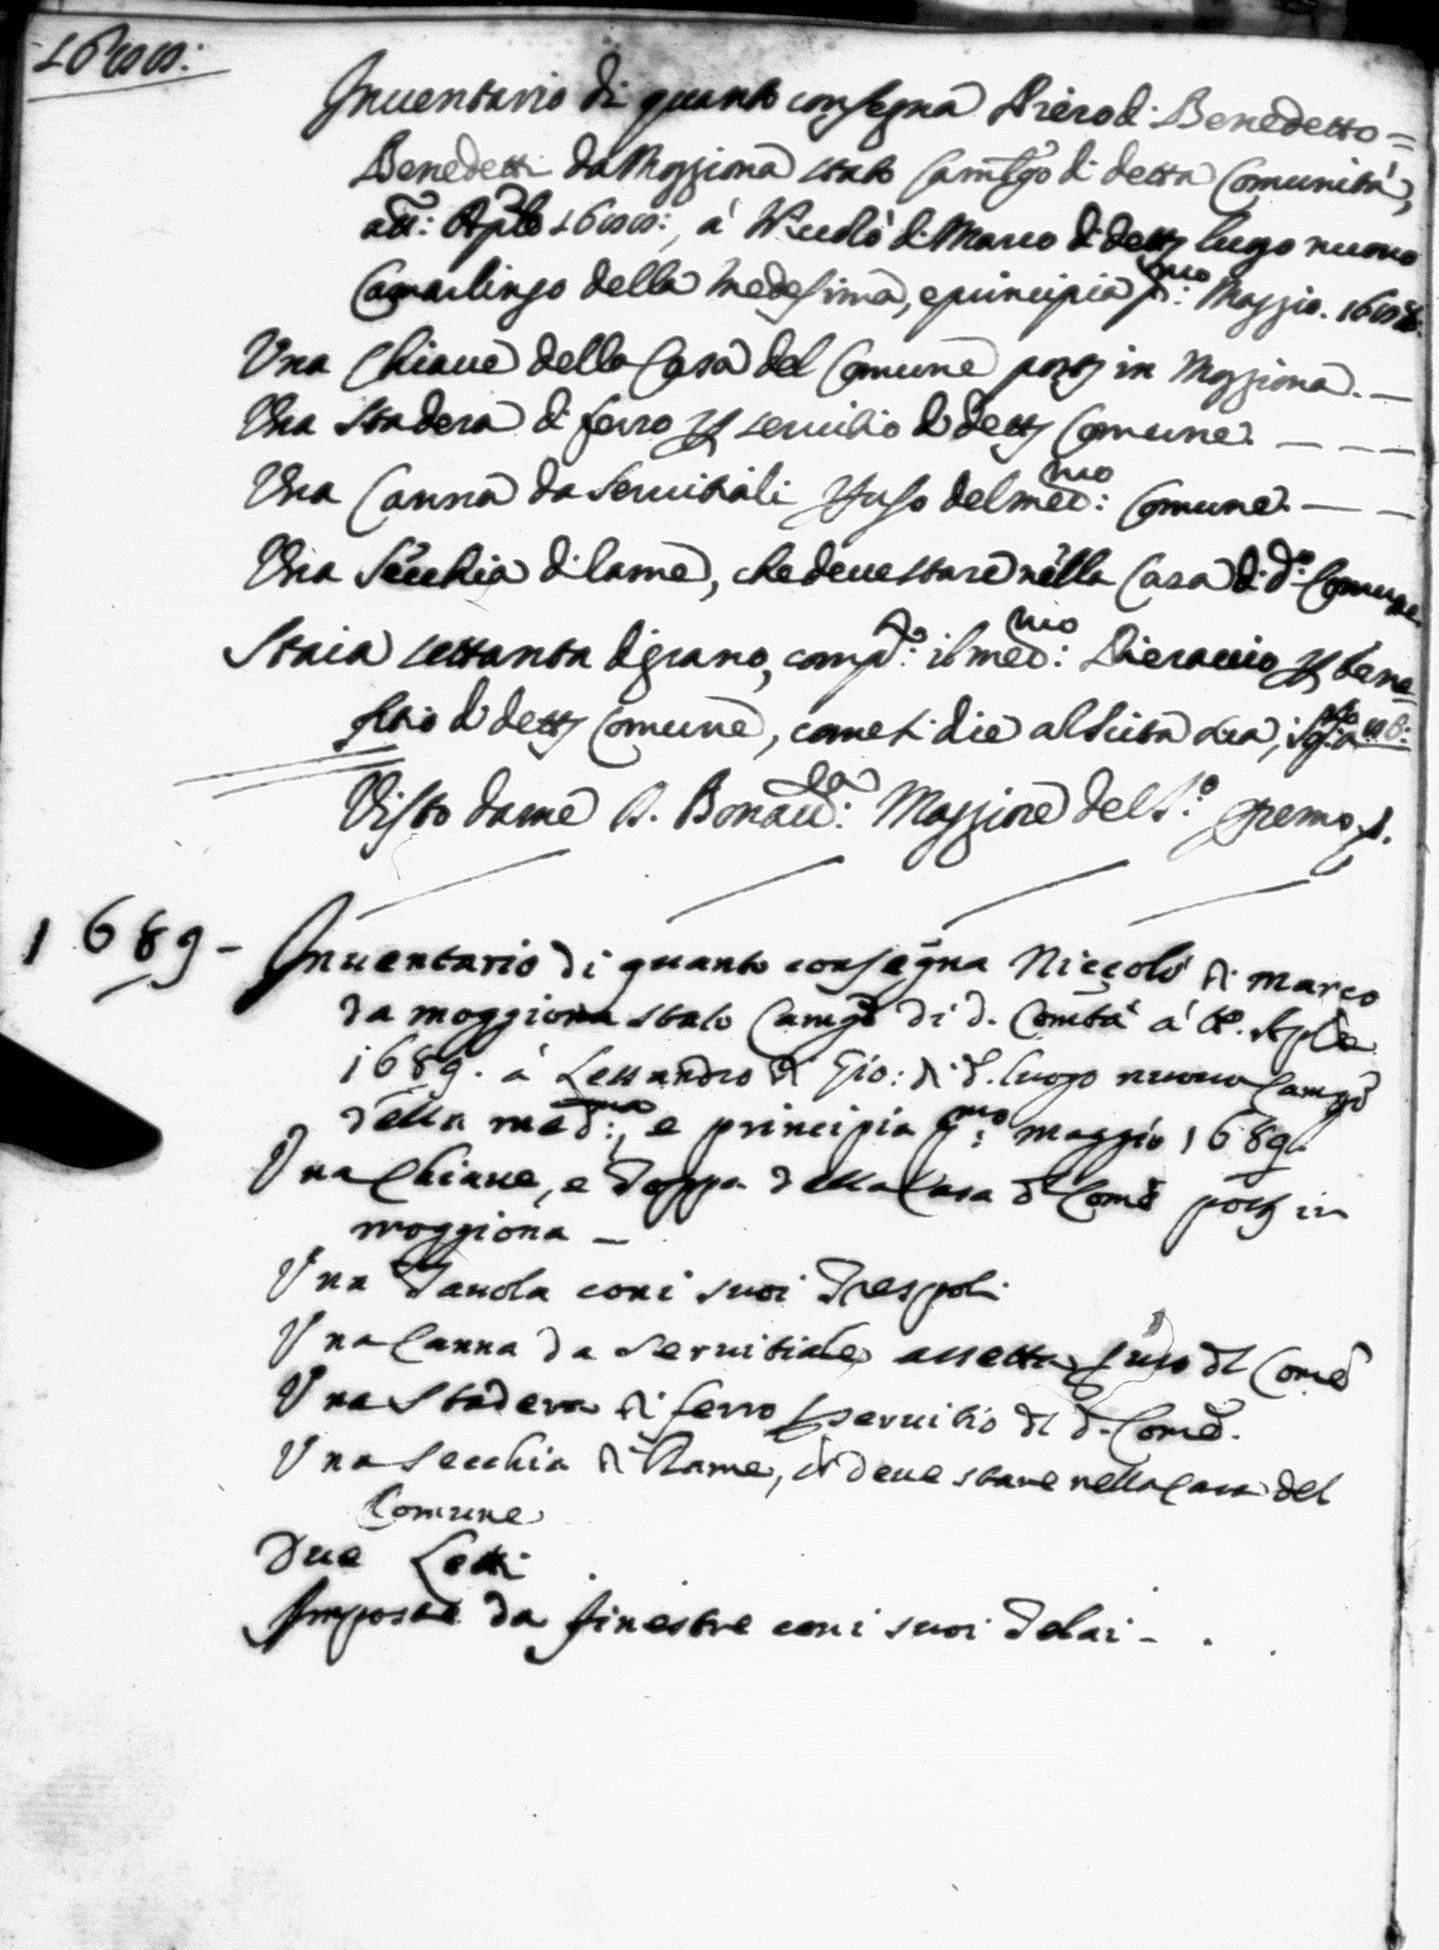 1688:
Inuentario di quanto consegna Piero di Benedetto
Benedetti da Moggiona stato Cam:go di detta Comunità,
Aple 1688:, à Niccolò di Marco di detto luogo nuouo
Camarlingo della medesima, e principia p:mo Maggio. 1688:
Vna Chiaue della Casa del Comune posta in Moggiona. —
Vna Stadera di ferro per seruitio di detto Comune. — — —
Vna Canna da Seruitiali per uso del med:mo Comune. — —
Vna Secchia di rame, che deue stare nella Casa di d.o Comune
Staia settanta di grano, il med:mo Pieraccio per bene
fitio di detto Comune, come si dice
Visto da me D. Maggiore del S.o Eremo
1689 - Inuentario di quanto consegna Niccolò di Marco
da moggiona stato Camgo di d. Comtà à Aple
1689. à Lessandro di Gio: di d. luogo nuouo Camgo
della med:ma, e principia p:mo maggio 1689.
Vna Chiaue, e Toppa della Casa del Come posta in
moggiona —
Vna Tauola con i suoi Trespoli
Vna Canna da Seruitiale assetta per uso del Come
Vna Stadera di ferro per seruitio del d. Come.
Vna Secchia di Rame, ch deue stare nella Casa del
Comune
Due Letti
Imposte da finestre con i suoi Telai - .